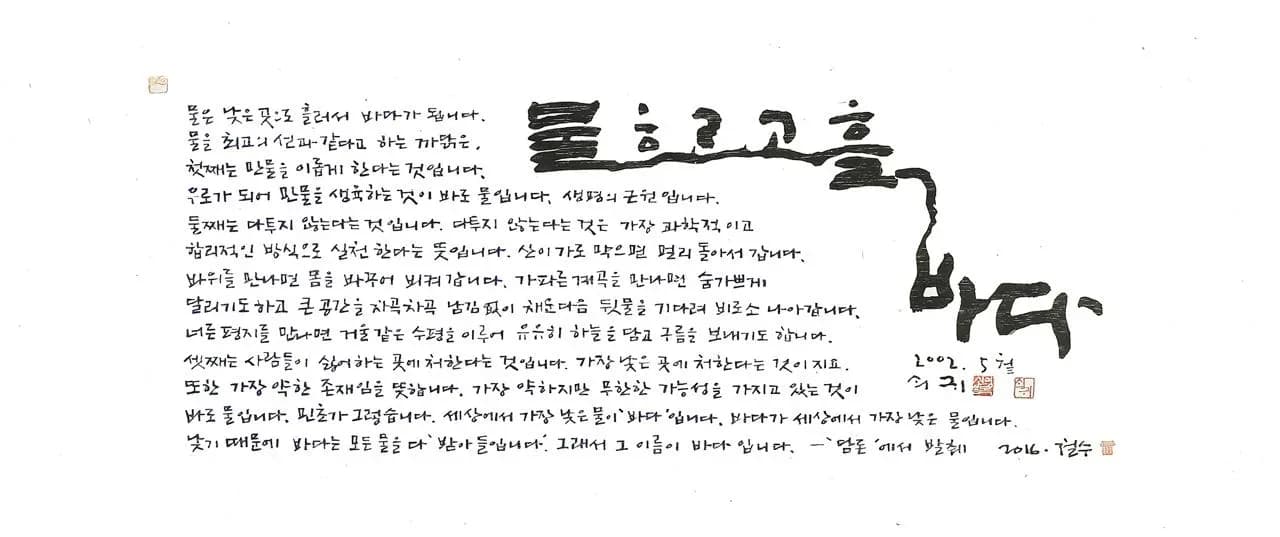 물은 낮은 곳으로 흘러서 바다가 됩니다.
물을 최고의 선과 같다고 하는 까닭은,
첫째는 만물을 이롭게 한다는 것입니다.
우로가 되어 만물을 생육하는 것이 바로 물입니다. 생명의 근원입니다.
둘째는 다투지 않는다는 것입니다. 다투지 않는다는 것은 가장 과학적이고
합리적인 방식으로 실천한다는 뜻입니다. 산이 가로막으면 멀리 돌아서 갑니다.
바위를 만나면 몸을 바꾸어 비켜 갑니다. 가파른 계곡을 만나면 숨가쁘게
달리기도하고 큰 공간을 차곡차곡 남김없이 채운다음 뒷물을 기다려 비로소 나아갑니다.
너른 평지를 만나면 거울같은 수평을 이루어 유유히 하늘을 담고 구름을 보내기도 합니다.
셋째는 사람들이 싫어하는 곳에 처한다는 것입니다. 가장 낮은 곳에 처한다는 것이지요.
또한 가장 약한 존재임을 뜻합니다. 가장 약하지만 무한한 가능성을 가지고 있는 것이
바로 물입니다. 민초가 그렇습니다. 세상에서 가장 낮은 물이 '바다'입니다. 바다가 세상에서 가장 낮은 물입니다.
낮기 때문에 바다는 모든 물을 다 '받아들입니다'. 그래서 그 이름이 바다 입니다. - '담론'에서 발췌 2016. 철수
물 흐르고 흘
바다
2002. 5월
쇠귀